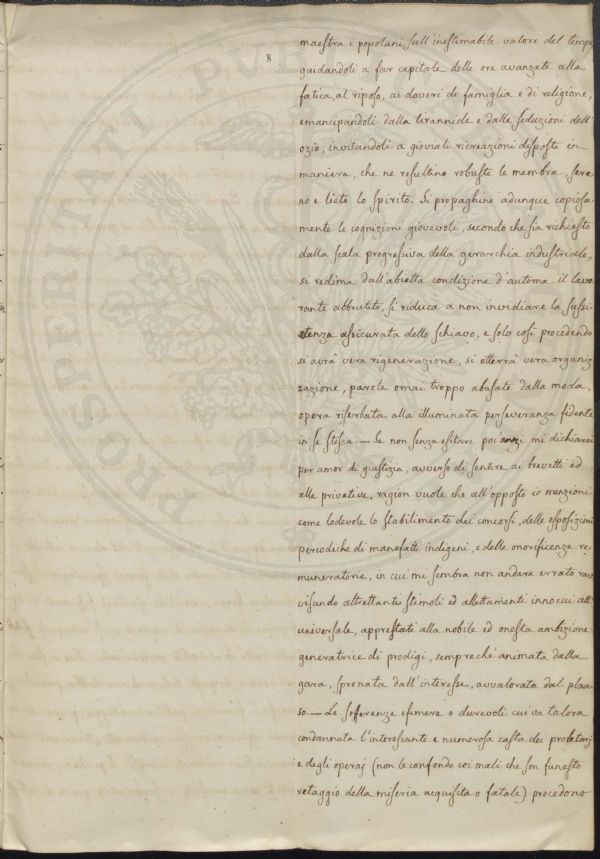 8
maestra i popolani sull'inestimabile valore del tempo
guidandoli a far capitale delle ore avanzate alla
fatica, al riposo, ai doveri di famiglia e di religione,
emancipandoli dalla tirannide e dalle seduzioni dell'
ozio, invitandoli a gioviali ricreazioni disposte in
maniera, che ne resultino robuste le membra, sere
no e lieto lo spirito. Si propaghino adunque copiosa
mente le cognizioni giovevoli, secondo che sia richiesto
dalla scala progressiva della gerarchia industriale,
si redima dall'abietta condizione d'automa il lavo
rante abbrutito, si riduca a non invidiare la sussi
stenza assicurata dello schiavo, e solo così procedendo
si avrà vera rigenerazione, si otterrà vera organiz
zazione, parole omai troppo abusate dalla moda,
opera riserbata alla illuminata perseveranza fidente
in se stessa. — Se non senza esitare poc'anzi mi dichiarai
per amor di giustizia, avverso di sentire ai brevetti ed
alle privative, ragion vuole che all'opposto io menzioni
come lodevole lo stabilimento dei concorsi, delle esposizioni
periodiche di manefatti indigeni, e delle onorificenze re
muneratorie, in cui mi sembra non andare errato rav
visando altrettanti stimoli ed allettamenti innocui all'
universale, apprestati alla nobile ed onesta ambizione
generatrice di prodigi, sempreché animata dalla
gara, spronata dall'interesse, avvalorata dal plau
so. — Le sofferenze efimere o durevoli cui va talora
condannata l'interessante e numerosa casta dei proletarj
e degli operaj (non le confondo coi mali che son funesto
retaggio della miseria acquisita o fatale) procedono
PROSPERITATI PVB